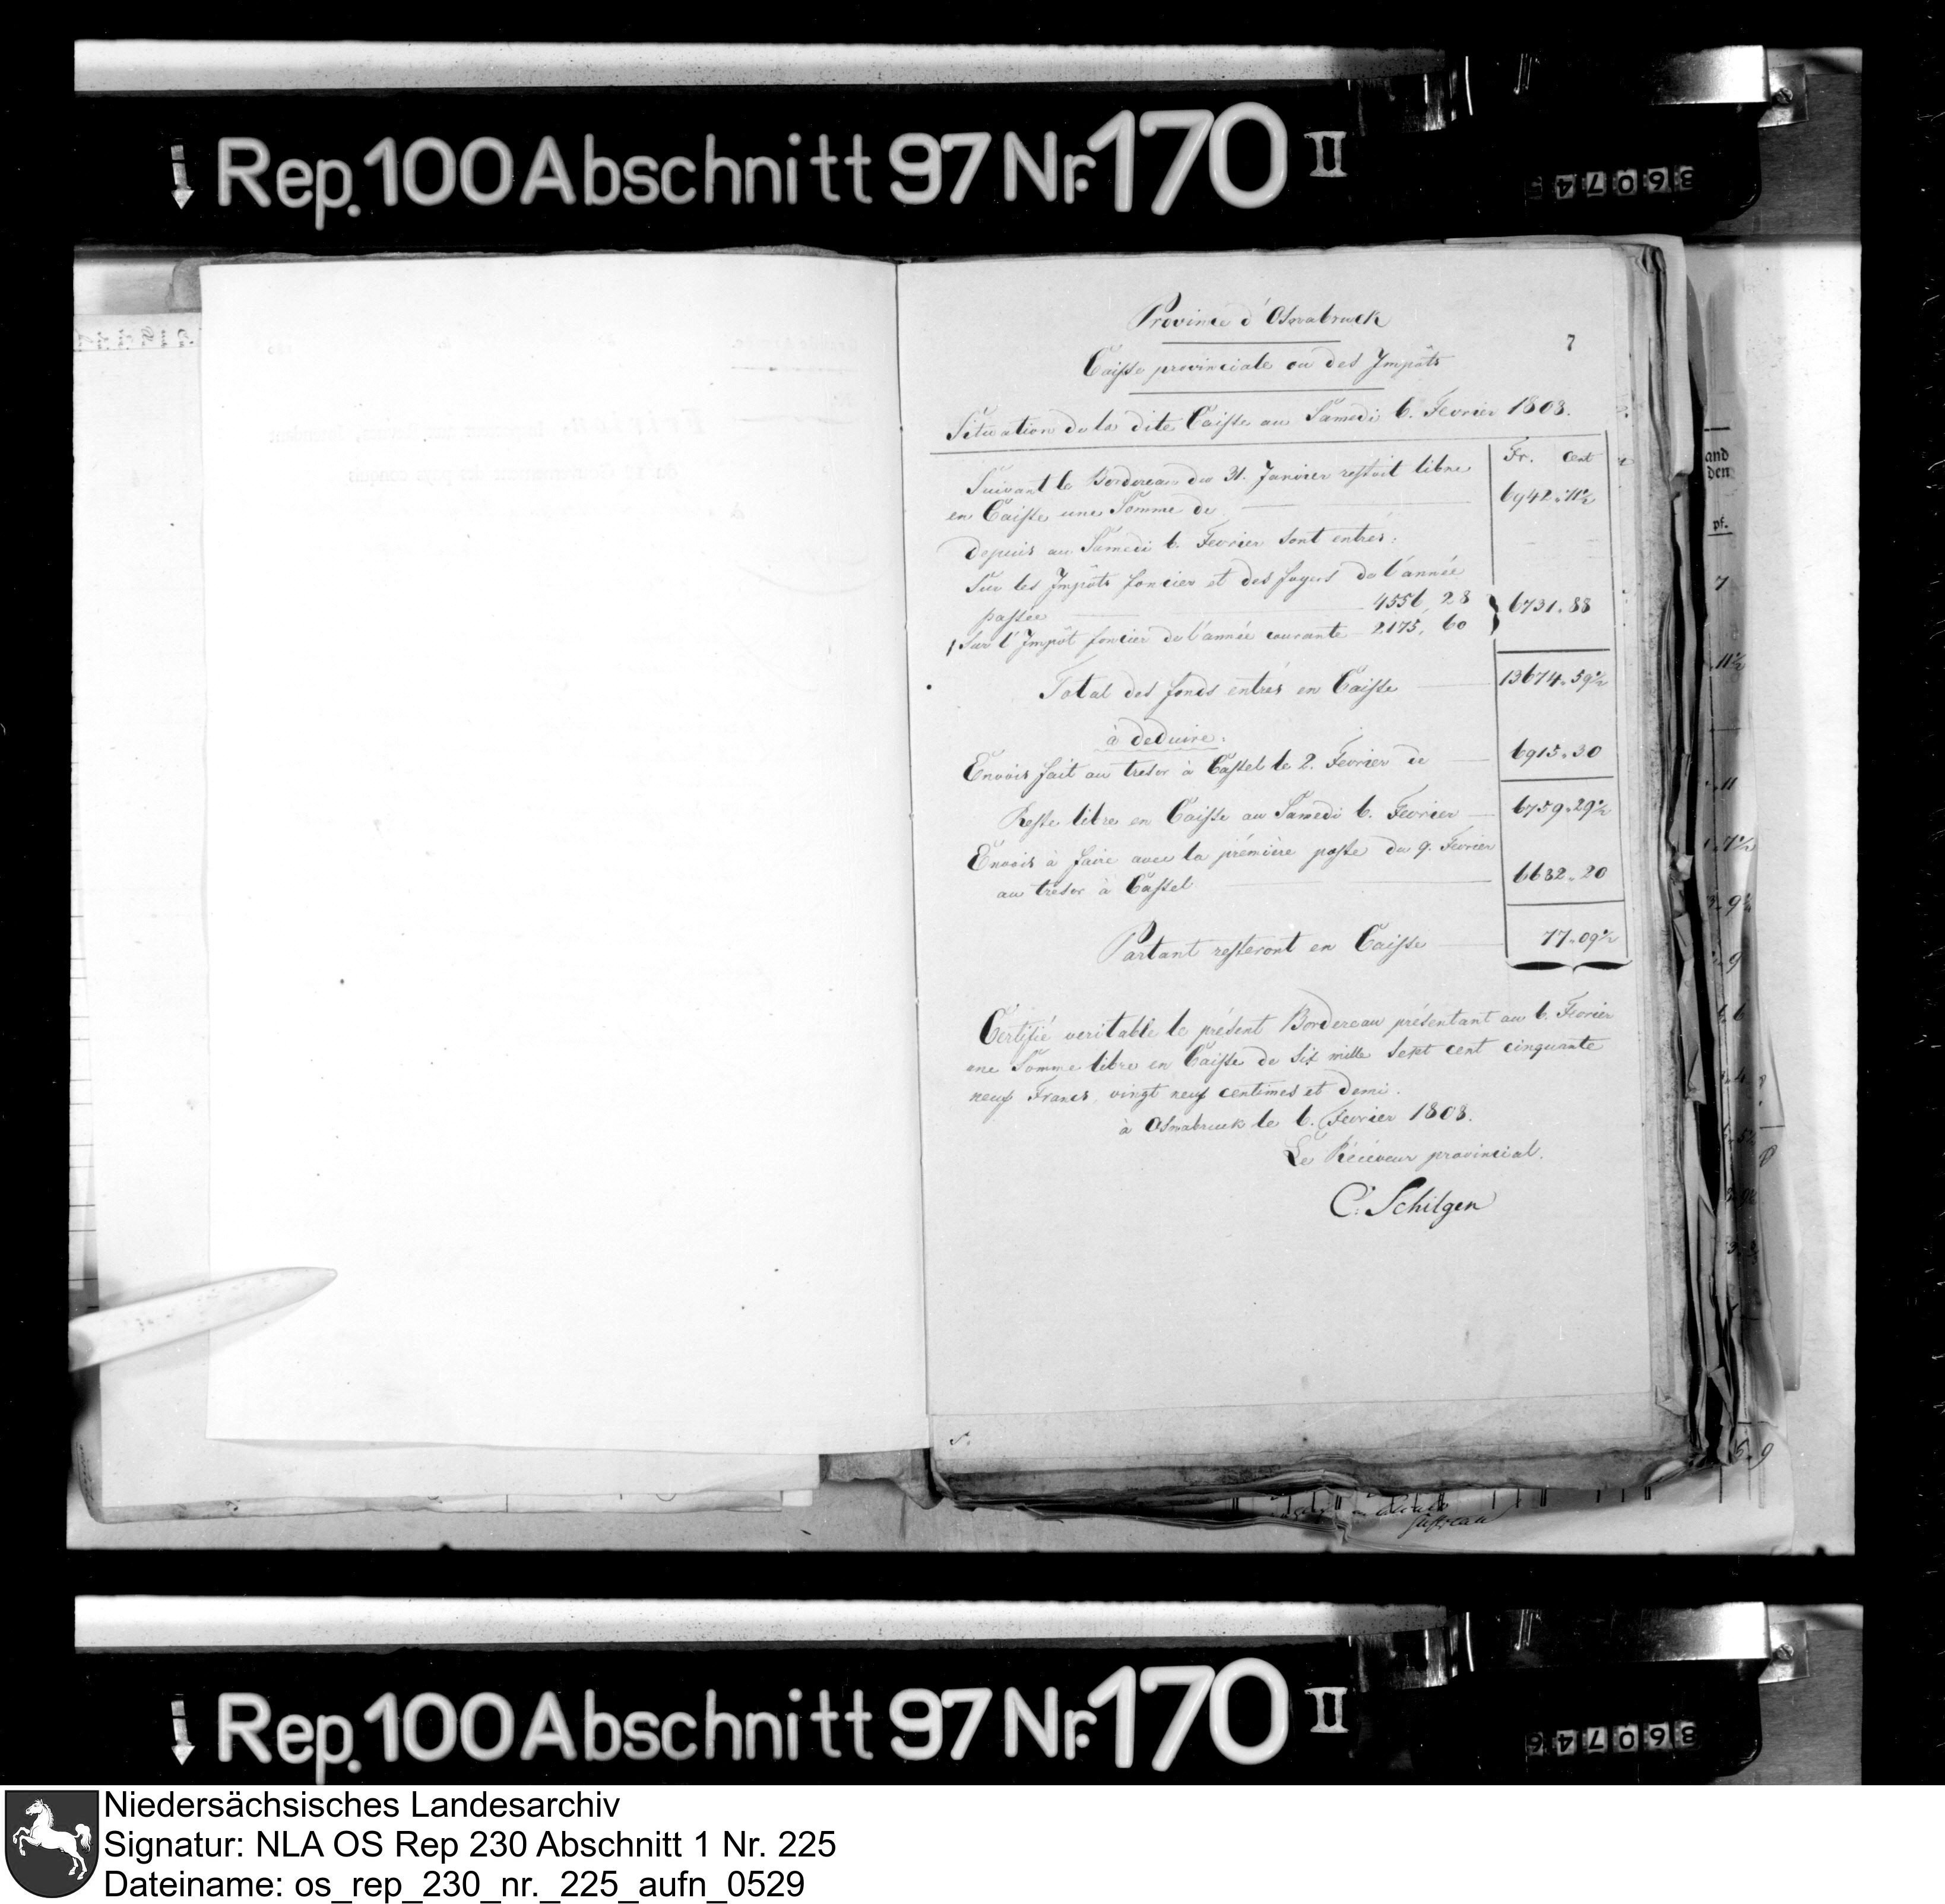 Rep. 100 Abschnitt 97 Nr. 170 II
Province d'Osnabruck
7
Caisse provinciale ou des Impôts
Situation de la dite Caisse au Samedi 6. Fevrier 1808.
Fr. Cent
Suivant le Bordereau du 31. Janvier restoit libre
en Caisse une Somme de 6942. 71½
depuis au Samedi 6. Fevrier sont entrés:
Sur les Impôts foncier et des foyers de l'année
passée 4556, 28
6731. 88
Sur l'Impôt foncier de l'année courante 2175, 60
Total des fonds entrés en Caisse 13674. 59½
à deduire.
Envois fait au tresor à Cassel le 2. Fevrier de 6915. 30
Reste libre en Caisse au Samedi 6. Fevrier 6759. 29½
Envois à faire avec la première poste du 9. Fevrier
au trésor à Cassel 6682. 20
Partant resteront en Caisse 77. 09½
Certifié veritable le présent Bordereau présentant au 6. Fevrier
une Somme libre en Caisse de Six mille Sept cent cinquante
neuf Francs, vingt neuf centimes et demi.
à Osnabruck le 6. Fevrier 1808.
Le Récéveur provincial.
C. Schilgen
Rep. 100 Abschnitt 97 Nr. 170 II
Niedersächsisches Landesarchiv
Signatur: NLA OS Rep 230 Abschnitt 1 Nr. 225
Dateiname: os_rep_230_nr._225_aufn_0529